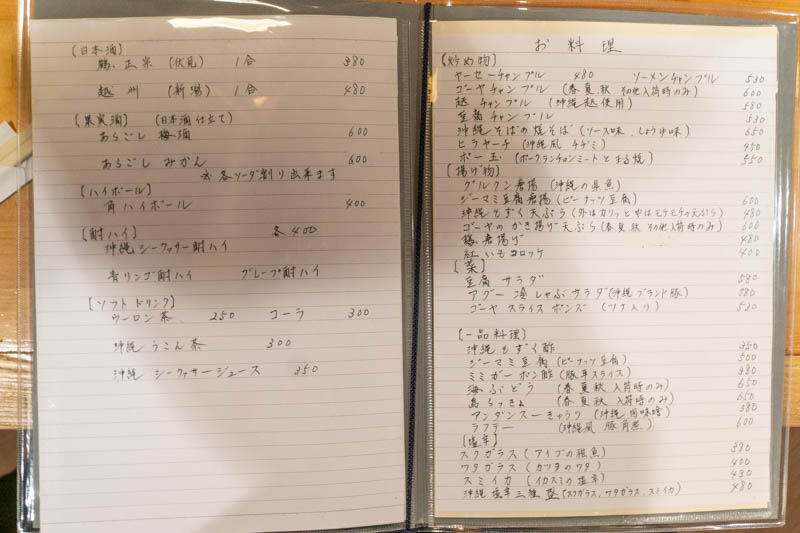 [日本酒]
鶴正宗 (伏見) 1合 380
越州 (新潟) 1合 480
[果実酒] (日本酒仕立て)
あらごし 梅酒 600
あらごし みかん 600
※各ソーダ割り出来ます
[ハイボール]
角ハイボール 400
[酎ハイ] 各400
沖縄シークァサー酎ハイ
青リンゴ酎ハイ グレープ酎ハイ
[ソフトドリンク]
ウーロン茶 250 コーラ 300
沖縄 うこん茶 300
沖縄 シークァサージュース 350
お料理
[炒め物]
ヤーセーチャンプル 480 ソーメンチャンプル 530
ゴーヤチャンプル (春夏秋 初他入荷時のみ) 600
チャンプル (沖縄 使用) 580
豆腐チャンプル 530
沖縄そばの焼そば (ソース味、しょうゆ味) 650
ヒラヤーチ (沖縄風 チヂミ) 450
ポー玉 (ポークランチョンミートと玉子焼) 550
[揚げ物]
グルクン唐揚 (沖縄の県魚)
ジーマミ豆腐唐揚 (ピーナッツ豆腐) 600
沖縄もずく天ぷら (外はカリッと中はモチモチの天ぷら) 480
ゴーヤのかき揚げ天ぷら (春夏秋 初他入荷時のみ) 600
唐揚げ 480
紅いもコロッケ 400
[菜]
豆腐サラダ 580
アグー冷しゃぶサラダ (沖縄ブランド豚) 780
ゴーヤ スライス ポンズ (ツナ入り) 530
[一品料理]
沖縄もずく酢 350
ジーマミ豆腐 (ピーナッツ豆腐) 500
ミミガーポン酢 (豚耳スライス) 380
海ぶどう (春夏秋 入荷時のみ) 650
島らっきょ (春夏秋 入荷時のみ) 650
アンダンスーきゅうり (沖縄肉味噌) 380
ラフテー (沖縄風 豚角煮) 600
[塩辛]
スクガラス (アイゴの稚魚) 380
ワタガラス (カツオのワタ) 400
スミイカ (イカスミの塩辛) 430
沖縄塩辛三種盛 (スクガラス、ワタガラス、スミイカ) 480